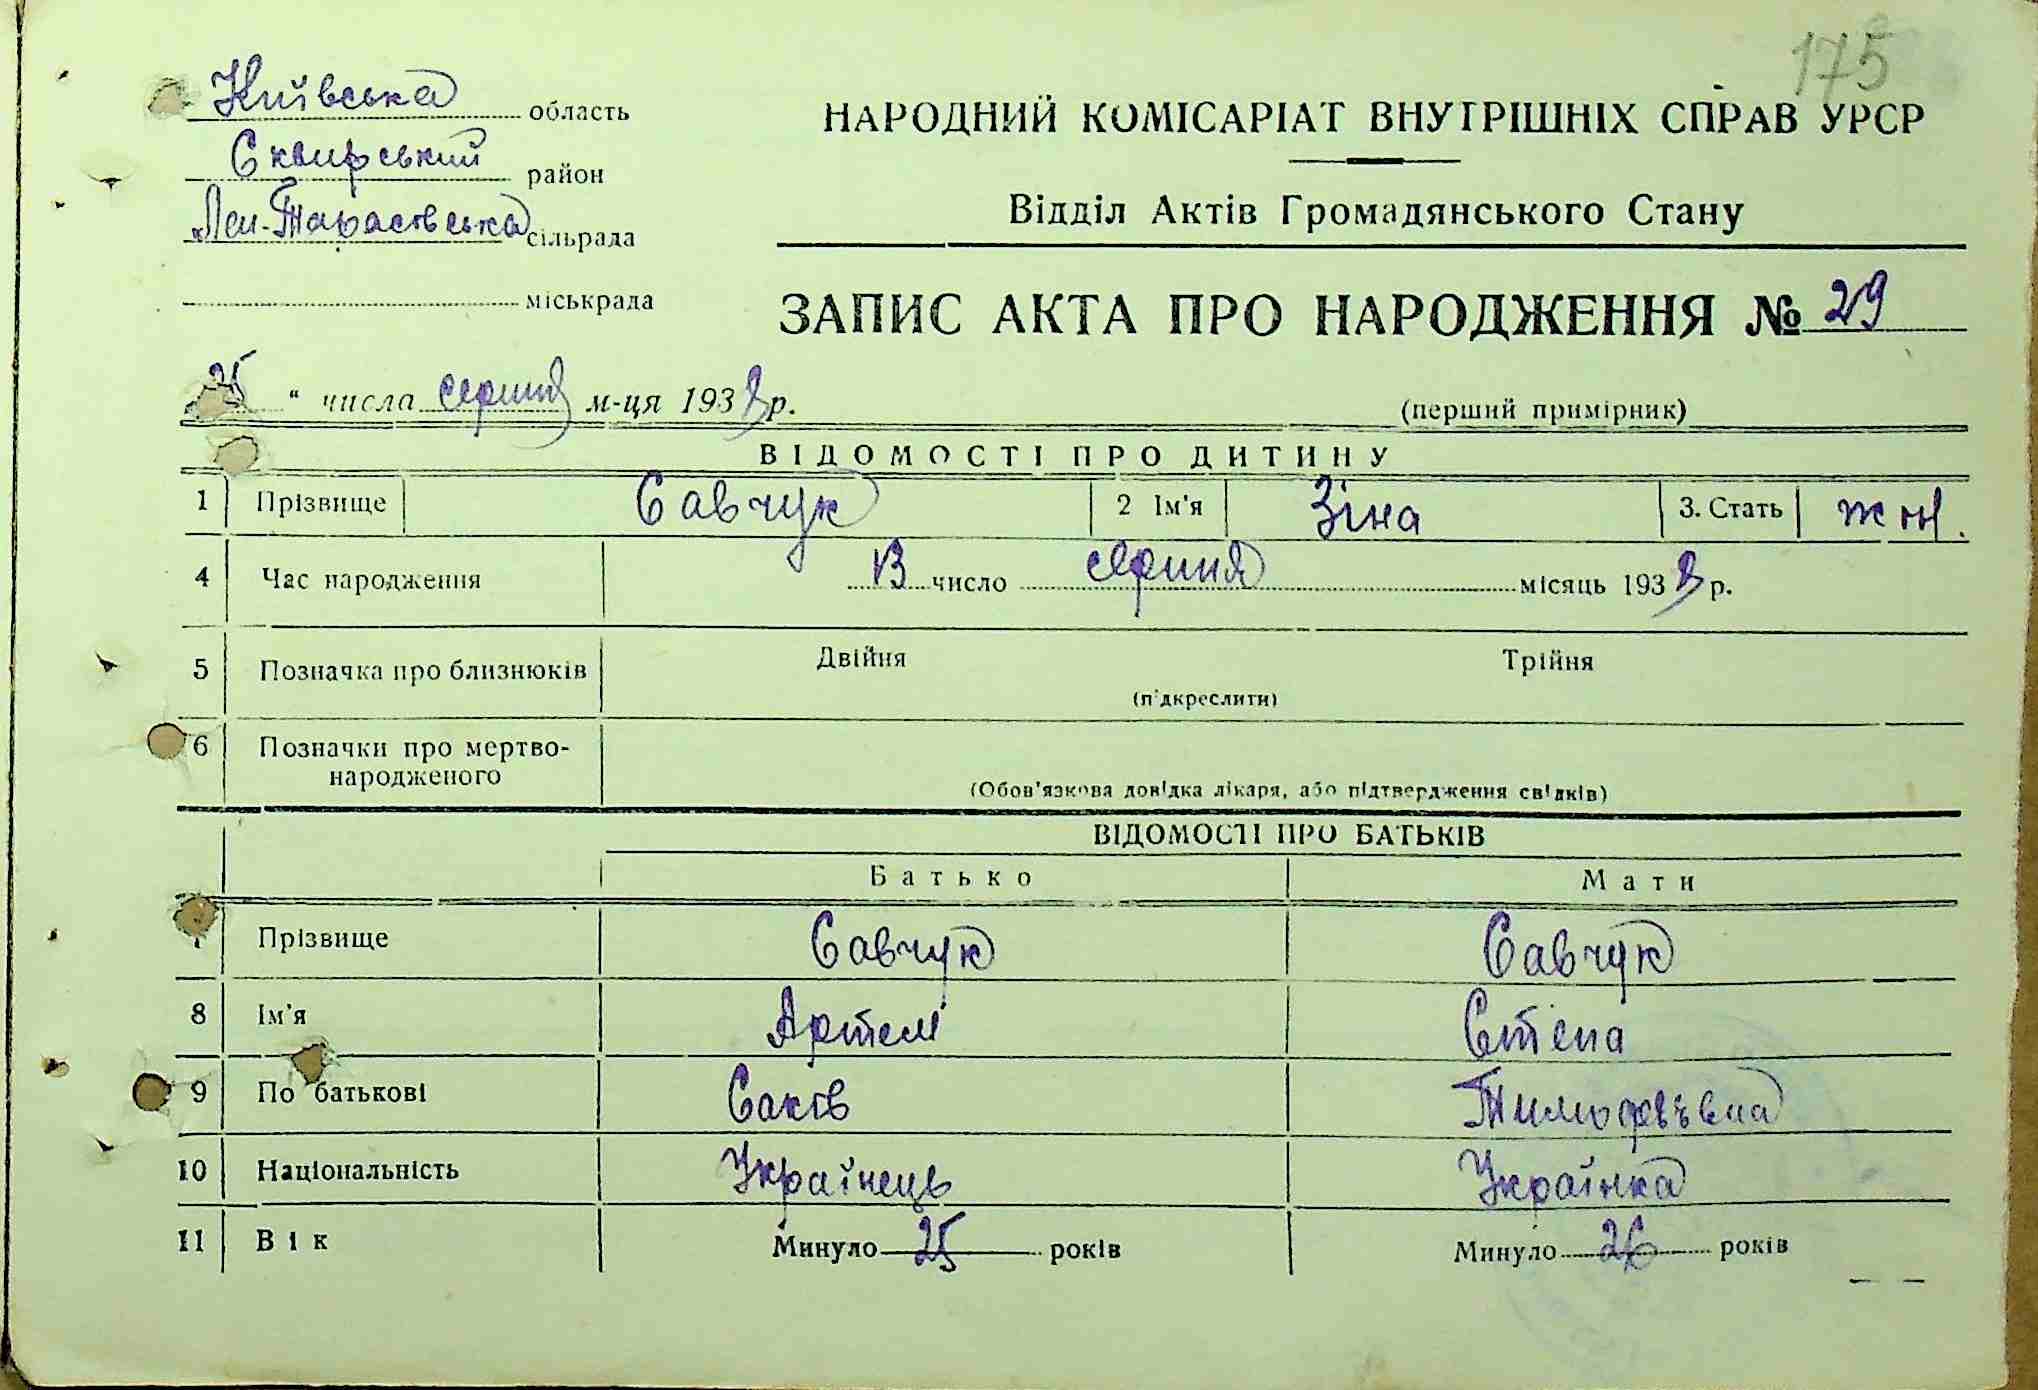 175
Київська область
Сквирський район
Лен-Тарасівська сільрада
міськрада
НАРОДНИЙ КОМІСАРІАТ ВНУТРІШНІХ СПРАВ УРСР
Відділ Актів Громадянського Стану
ЗАПИС АКТА ПРО НАРОДЖЕННЯ № 29
25 " числа серпня м-ця 1938 р.
(перший примірник)
ВІДОМОСТІ ПРО ДИТИНУ
1 Прізвище Савчук 2 Ім'я Зіна 3. Стать жін.
4 Час народження 13 число серпня місяць 1938 р.
5 Позначка про близнюків Двійня Трійня
(підкреслити)
6 Позначки про мертво-
народженого
(Обов'язкова довідка лікаря, або підтвердження свідків)
ВІДОМОСТІ ПРО БАТЬКІВ
Батько Мати
Прізвище Савчук Савчук
8 Ім'я Артем Степа
9 По батькові Саків
10 Національність Українець Українка
11 Вік Минуло 25 років Минуло 26 років